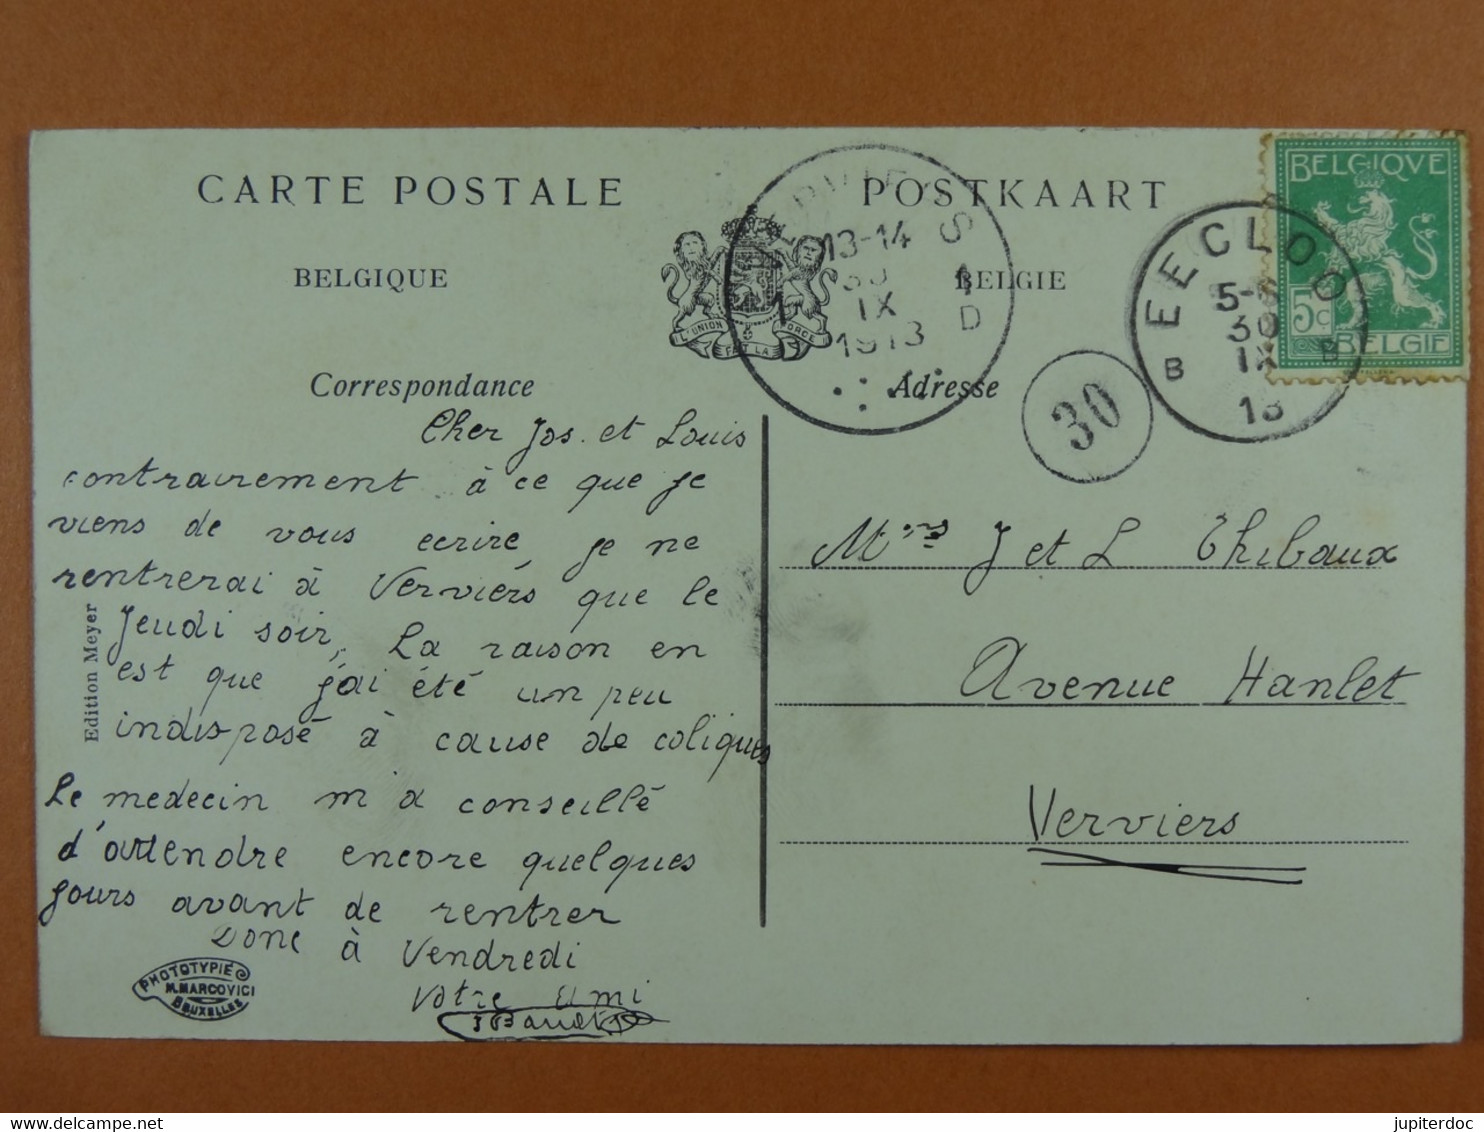 CARTE POSTALE
POSTKAART
BELGIQUE
BELGIE
L'UNION FAIT LA FORCE
Correspondance
Adresse
VERVIERS
13-14
30
IX
1913
1 D
30
EECLOO
5-6
30
IX
13
B B
BELGIQVE
5c
BELGIE
Cher Jos. et Louis
contrairement à ce que je
viens de vous ecrire je ne
rentrerai à Verviérs que le
Jeudi soir, La raison en
est que j'ai été un peu
indisposé à cause de coliques
Le medecin m a conseillé
d'attendre encore quelques
jours avant de rentrer
Donc à Vendredi
Votre ami
Edition Meyer
PHOTOTYPIE
M. MARCOVICI
BRUXELLES
Mrs J et L Thibaux
Avenue Hanlet
Verviers
jupiterdoc